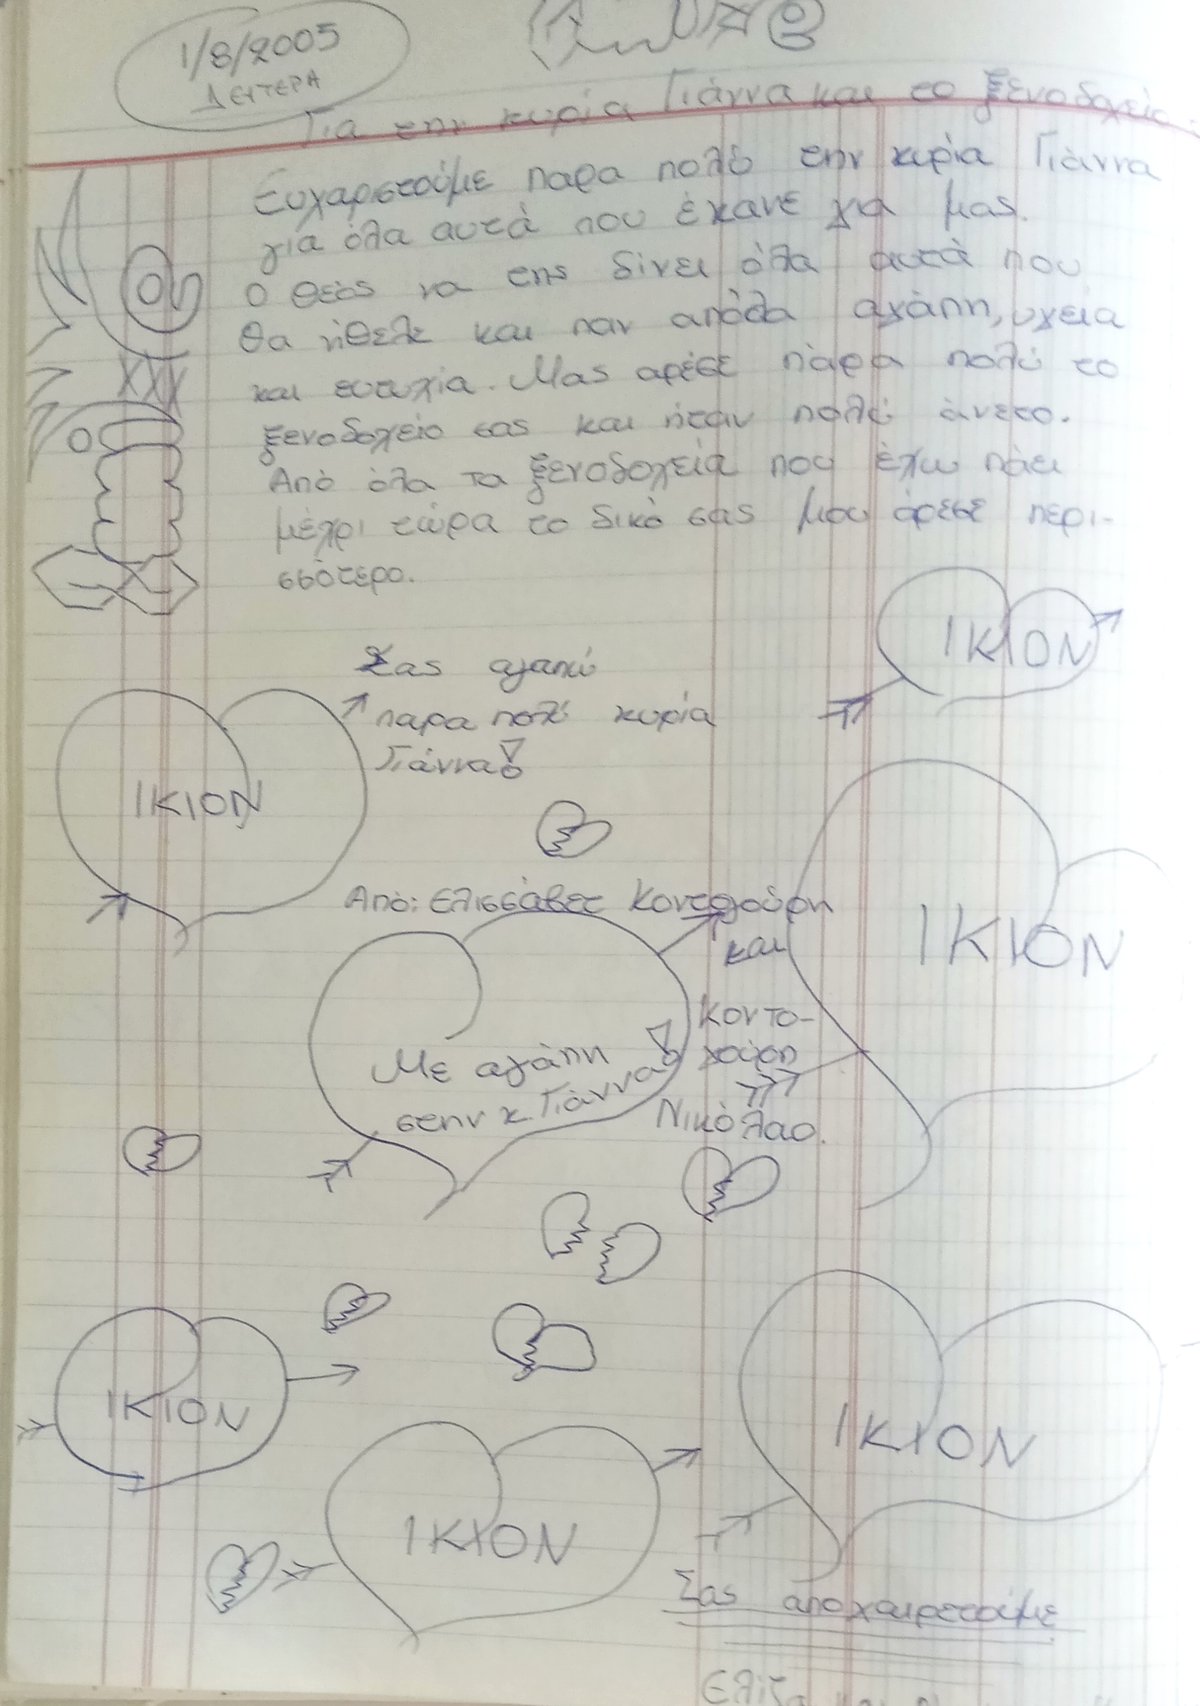 1/8/2005
ΔΕΥΤΕΡΑ
Για την κυρία Γιάννα και το ξενοδοχείο.
Ευχαριστούμε παρα πολύ την κυρία Γιάννα
για όλα αυτά που έκανε για μας.
Ο θεός να της δίνει όλα αυτά που
θα ήθελε και παν απόλα αγάπη, υγεία
και ευτυχία. Μας αρέσε πάρα πολύ το
ξενοδοχείο σας και ήταν πολύ άνετο.
Από όλα τα ξενοδοχεία που έχω πάει
μέχρι τώρα το δικό σας μου άρεσε περι-
σσότερο.
ΙΚΙΟΝ
Σας αγαπώ
παρα πολύ κυρία
Γιάννα!
ΙΚΙΟΝ
Από: Ελισσάβετ
και
ΙΚΙΟΝ
Κοντο-
Με αγάπη
στην κ. Γιάννα!
Νικόλαο.
ΙΚΙΟΝ
ΙΚΙΟΝ
ΙΚΙΟΝ
Σας αποχαιρετούμε
Ελίζα και